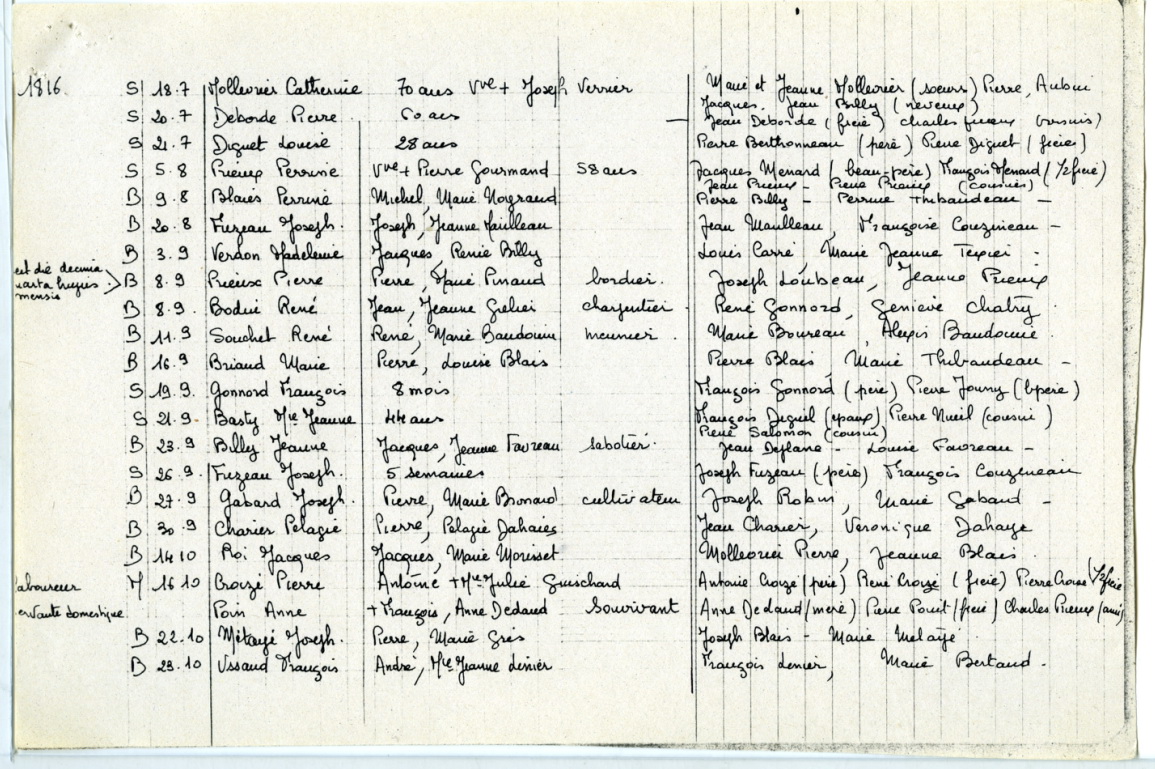 1816 S 18.7 Molleorier Catherine 70 ans Vve + Joseph Verrier Marie et Jeanne Mollevrier (soeurs) Pierre, Aubin
Jacques, Jean Billy (neveux)
S 20.7 Deborde Pierre 60 ans — Jean Deborde (frère) Charles (voisins)
S 21.7 Diguet Louise 28 ans Pierre Berthonneau (père) Pierre Diguet (frère)
S 5.8 Prieux Perrine Vve + Pierre Gourmand 58 ans Jacques Menard (beau-père) François Menard (1/2 frère)
Jean Prieux - Pierre Prieux (cousins)
B 9.8 Blais Perrine Michel, Marie Nograud Pierre Billy - Perrine Thibaudeau -
B 20.8 Fuzeau Joseph. Joseph, Jeanne Maulleau Jean Maulleau, Françoise Cousineau -
B 3.9 Verdon Madeleine Jacques, Renée Billy Louis Carré, Marie Jeanne Texier -
est die decima
quarta hujus
mensis
B 8.9 Prieux Pierre Pierre, Marie Pinaud bordier. Joseph Loubeau, Jeanne Prieux
B 8.9 Bodue René Jean, Jeanne Grelier charpentier René Gonnord, Geniève Chatry
B 11.9 Souchet René René, Marie Baudouin meunier. Marie Boureau, Alexis Baudouin -
B 16.9 Briand Marie Pierre, Louise Blais Pierre Blais, Marie Thibaudeau -
S 19.9. Gonnord François 8 mois François Gonnord (père) Pierre (bpère)
S 21.9. Basty Mie Jeanne 44 ans François (epoux) Pierre Nueil (cousin)
Pierre Salomon (cousin)
B 23.9 Billy Jeanne Jacques, Jeanne Favreau sabotier. Jean Deflane - Louise Favreau -
S 26.9. Fuzeau Joseph. 5 semaines Joseph Fuzeau (père) François Cousineau
B 27.9 Gabard Joseph. Pierre, Marie Bronard cultivateur Joseph Robin, Marie Gabard -
B 30.9 Charier Pelagie Pierre, Pelagie Dahaies Jean Charier, Veronique Dahaye
B 14 10 Roi Jacques Jacques, Marie Morisset Mollevrier Pierre, Jeanne Blais.
laboureur M 16 10 Croizé Pierre Antoine + Mie Julie Guischard Antoine Croizé (père) René Croizé (frère) Pierre Croizé (1/2 frère
servante domestique Poin Anne + François, Anne Dedaud Souvivant Anne Dedaud (mère) Pierre (frère) Charles Prieux (ami)
B 22.10 Métayé Joseph. Pierre, Marie Gris Joseph Blais - Marie Metayé
B 23.10 Ussaud François André, Mie Jeanne Lenier François Lenier, Marie Bertaud.